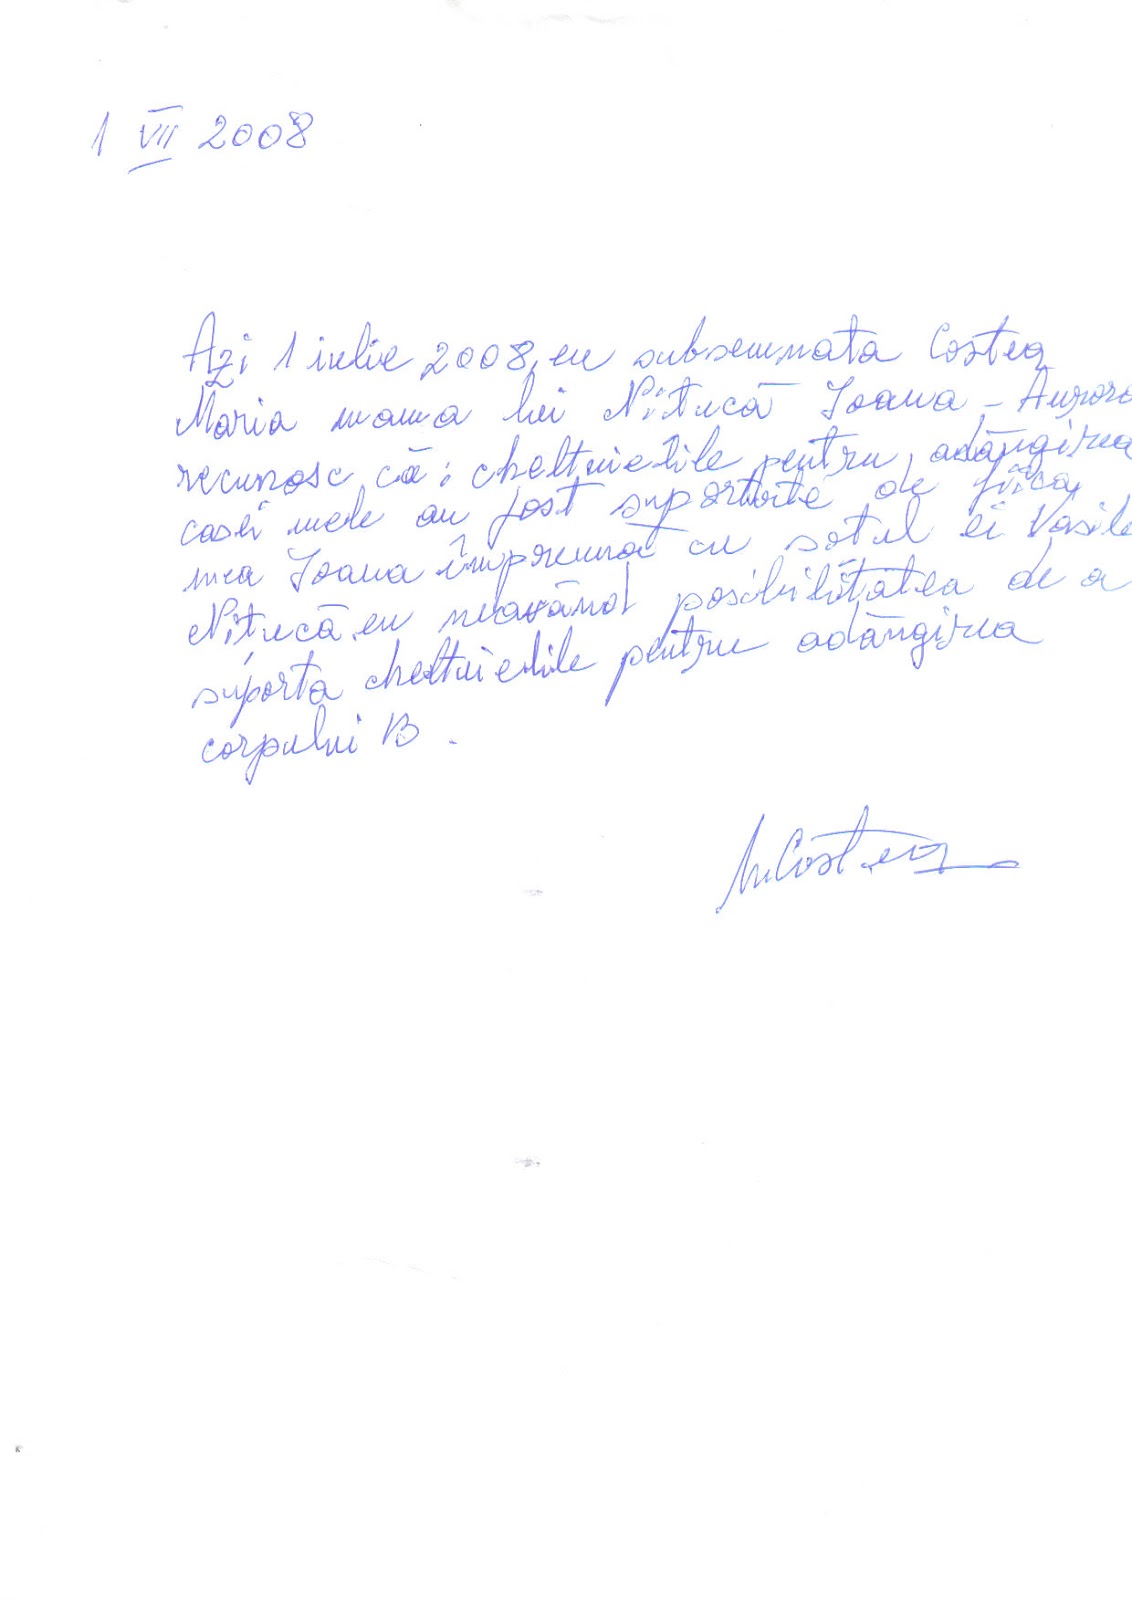 1 VII 2008
Azi 1 iulie 2008, eu subsemnata Costea
Maria mama lui Nițucă Ioana - Aurora
recunosc că: cheltuielile pentru adângirea
casei mele au fost suportate de fiica
mea Ioana împreună cu soțul ei Vasile
Nițucă, eu neavând posibilitatea de a
suporta cheltuielile pentru adângirea
corpului B.
MCostea